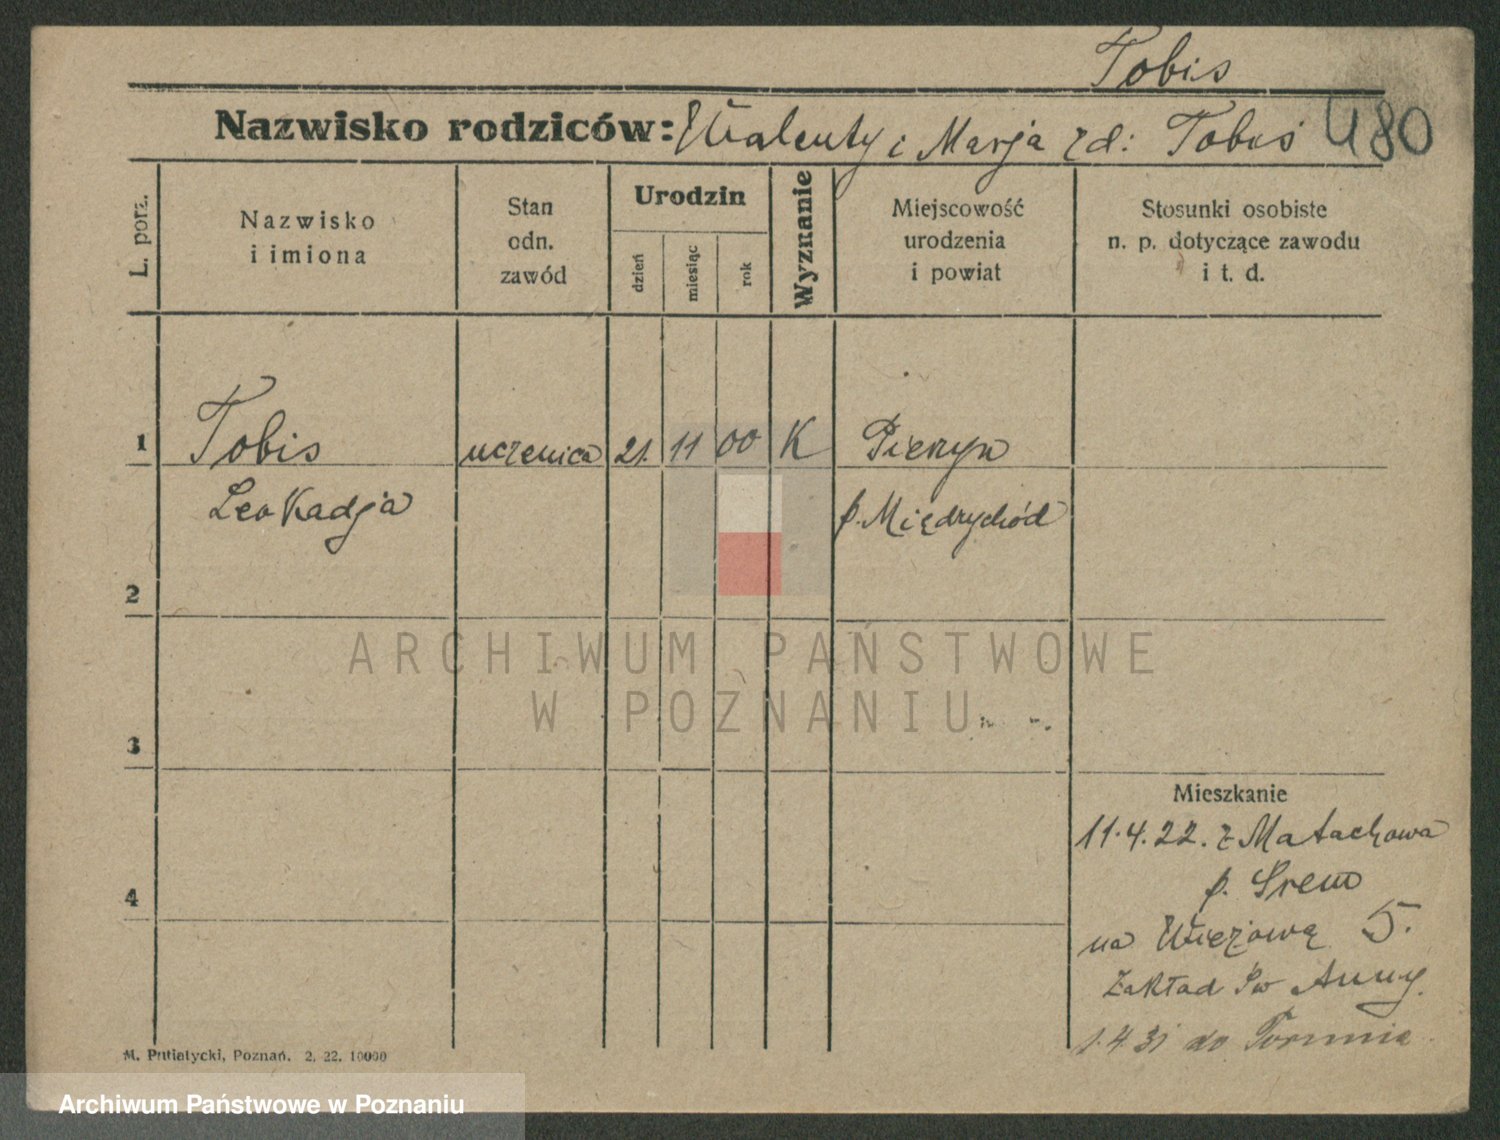 Tobis
Nazwisko rodziców: Walenty i Marja zd: Tobis 480
L. porz.
Nazwisko
i imiona
Stan
odn.
zawód
Urodzin
dzień
miesiąc
rok
Wyznanie
Miejscowość
urodzenia
i powiat
Stosunki osobiste
n. p. dotyczące zawodu
i t. d.
1 Tobis uczenica 21. 11 00 K
Leokadja p. Międzychód
2
ARCHIWUM PAŃSTWOWE
W POZNANIU
3
Mieszkanie
11.4.22. z
4 p. Śrem
na Wieżową 5.
Zakład Św Anny.
1.4.31 do Torunia
M. Putiatycki, Poznań. 2. 22. 10000
Archiwum Państwowe w Poznaniu